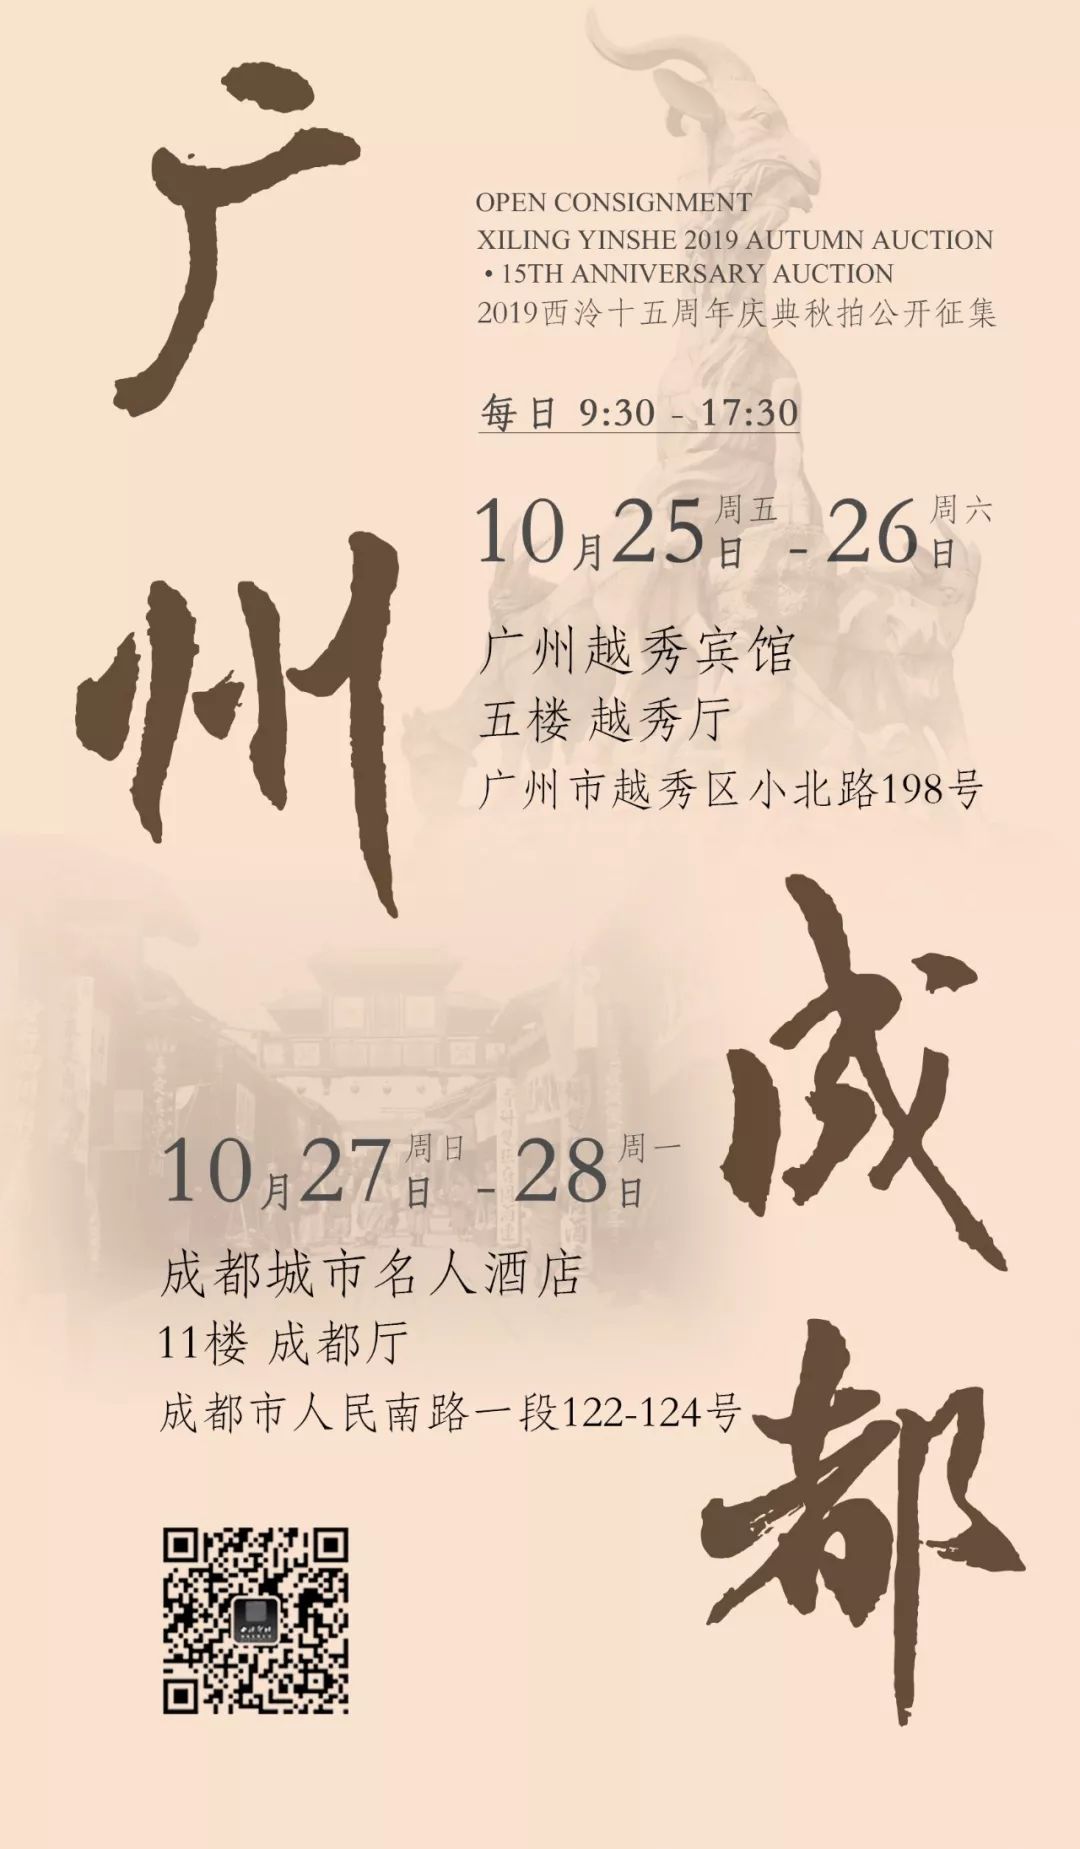 广州
OPEN CONSIGNMENT
XILING YINSHE 2019 AUTUMN AUCTION
•15TH ANNIVERSARY AUCTION
2019西泠十五周年庆典秋拍公开征集
每日 9:30 - 17:30
10月25日周五 - 26日周六
广州越秀宾馆
五楼 越秀厅
广州市越秀区小北路198号
成都
10月27日周日 - 28日周一
成都城市名人酒店
11楼 成都厅
成都市人民南路一段122-124号